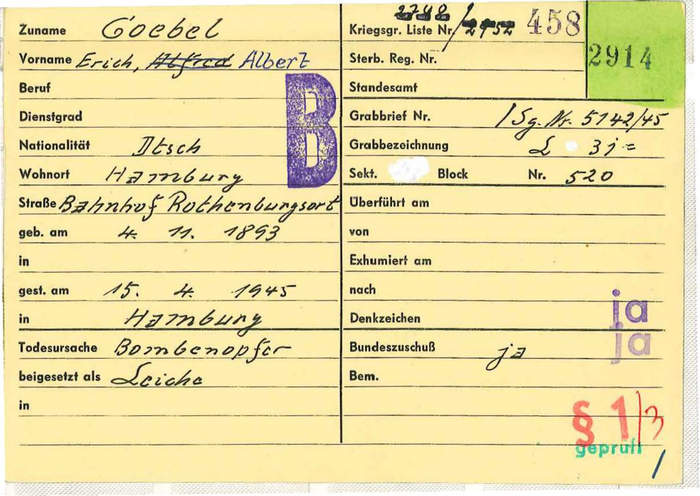 Zuname Goebel
Vorname Erich, Alfred Albert
Beruf
Dienstgrad
B
Nationalität Dtsch
Wohnort Hamburg
Straße Bahnhof Rothenburgsort
geb. am 4. 11. 1893
in
gest. am 15. 4. 1945
in Hamburg
Todesursache Bombenopfer
beigesetzt als Leiche
in
Kriegsgr. Liste Nr. 2788/2952 458
Sterb. Reg. Nr. 2914
Standesamt
Grabbrief Nr. /Sg. Nr. 5142/45
Grabbezeichnung L 31=
Sekt. Block Nr. 520
Überführt am
von
Exhumiert am
nach ja
Denkzeichen
Bundeszuschuß ja ja
Bem.
§ 1/3
geprüft